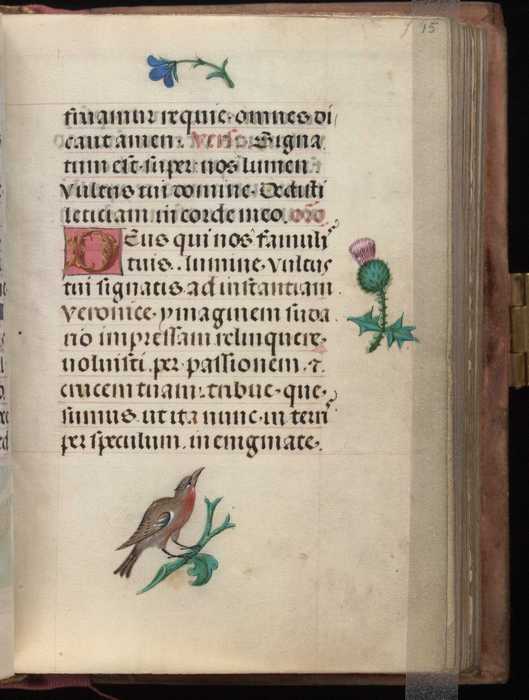 15
fruamur requie. omnes di
cant amen. Verso. Signa
tum est super nos lumen
vultus tui domine. Dedisti
leticiam in corde meo. oro
Deus qui nos famuli
tuis. lumine. vultus
tui signatis. ad instantiam
veronice. ymaginem suda
rio impressam relinquere.
uoluisti. per passionem. ⁊.
crucem tuam. tribue. que
sumus. ut ita nunc. in terri
per speculum. in enigmate.